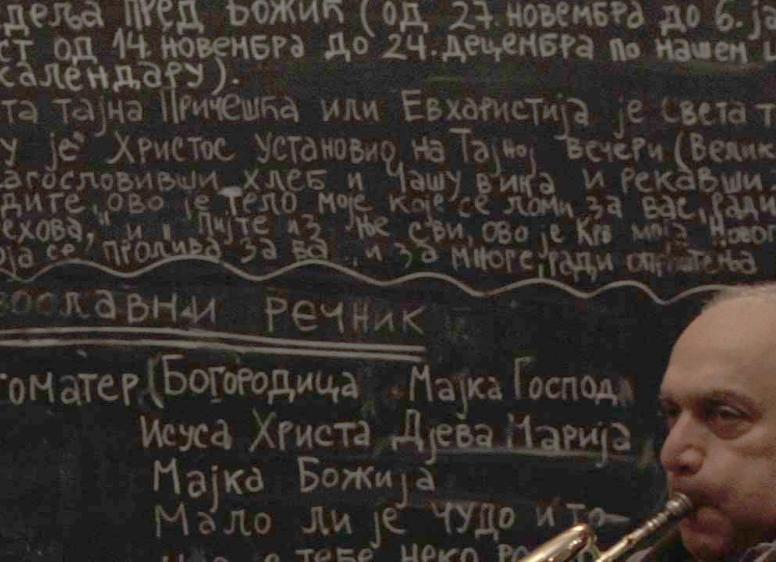 деља пред Божић (од 27. новембра до 6. ја
ст од 14. новембра до 24. децембра по нашем
календару).
та тајна Причешћа или Евхаристија је света т
у је Христос установио на Тајној вечери (Велик
агословивши хлеб и чашу вина и рекавши
дите, ово је тело моје које се ломи за вас, ради
ехова," и „Пијте из ње сви, ово је Крв моја Новог
оја се пролива за ва и за многе, ради опроштења
вославни речник
гоматер (Богородица Мајка Господ
Исуса Христа Дјева Марија
Мајка Божија
Мало ли је чудо и то
тебе неко